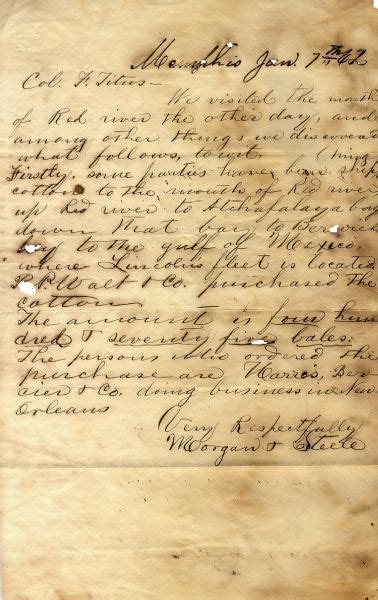 Memphis Jan. 7th 62
Col. F. Titus—
We visited the mouth
of Red river the other day, and
among other things we discovered
what follows, to wit.
Firstly, some parties have been ship
(ping
cotton to the mouth of Red river
up Red river to Atchafalaya bay
down that bay to Berwick
bay to the gulf of Mexico,
where Lincoln's fleet is located
P. Walt & Co. purchased the
cotton
The amount is four hun
dred & seventy five bales.
The persons who ordered the
purchase are Harris, Ber
cier & Co. doing business in New
Orleans
Very Respectfully
Morgan & Steele